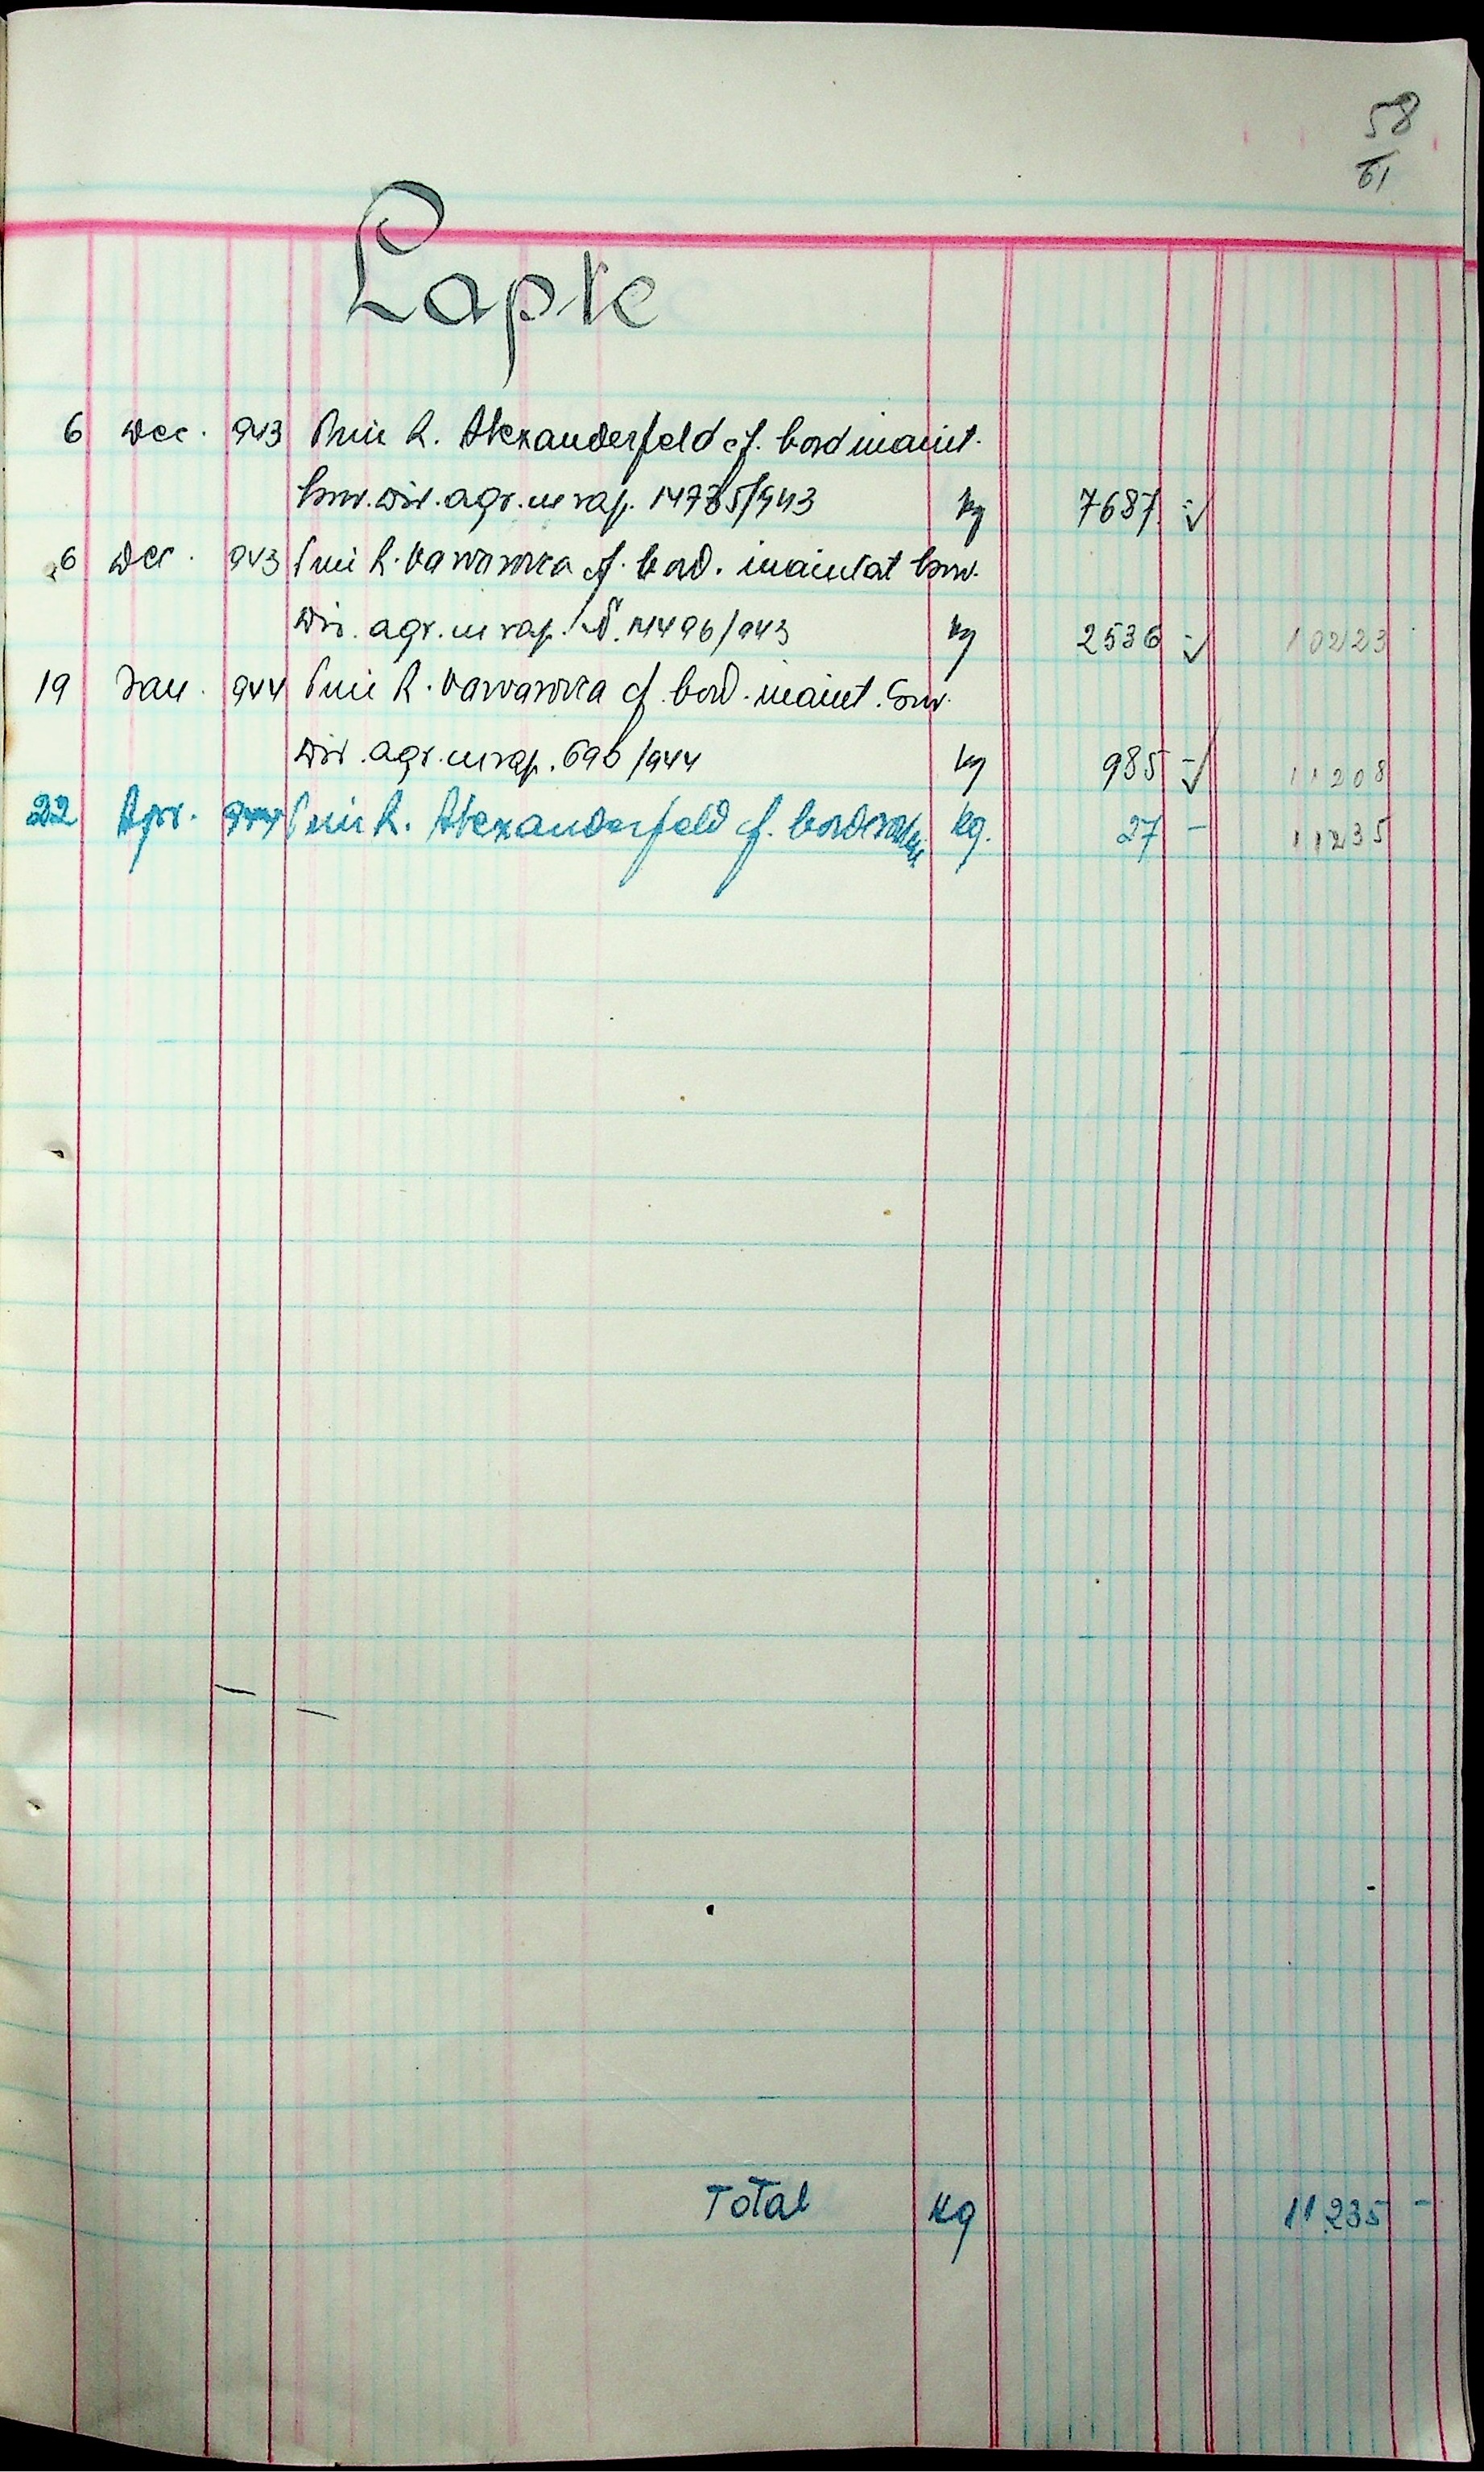 58
61
Lapte
6 Dec. 943 Prin R. Alexanderfeld cf. bord inaint.
Dir. agr. cu rap. 14735/943 kg 7687 -
6 Dec. 943 Prin R. Varvarovca cf. bord. inaintat
Dir. agr. cu rap. 14496/943 kg 2536 - 10223
19 Ian. 944 Prin R. Varvarovca cf. bord. inaint.
Dir. agr. cu rap. 696/944 kg 985 - 11208
22 Apr. 944 Prin R. Alexanderfeld cf. kg. 27 - 11235
Total Kg 11235 -